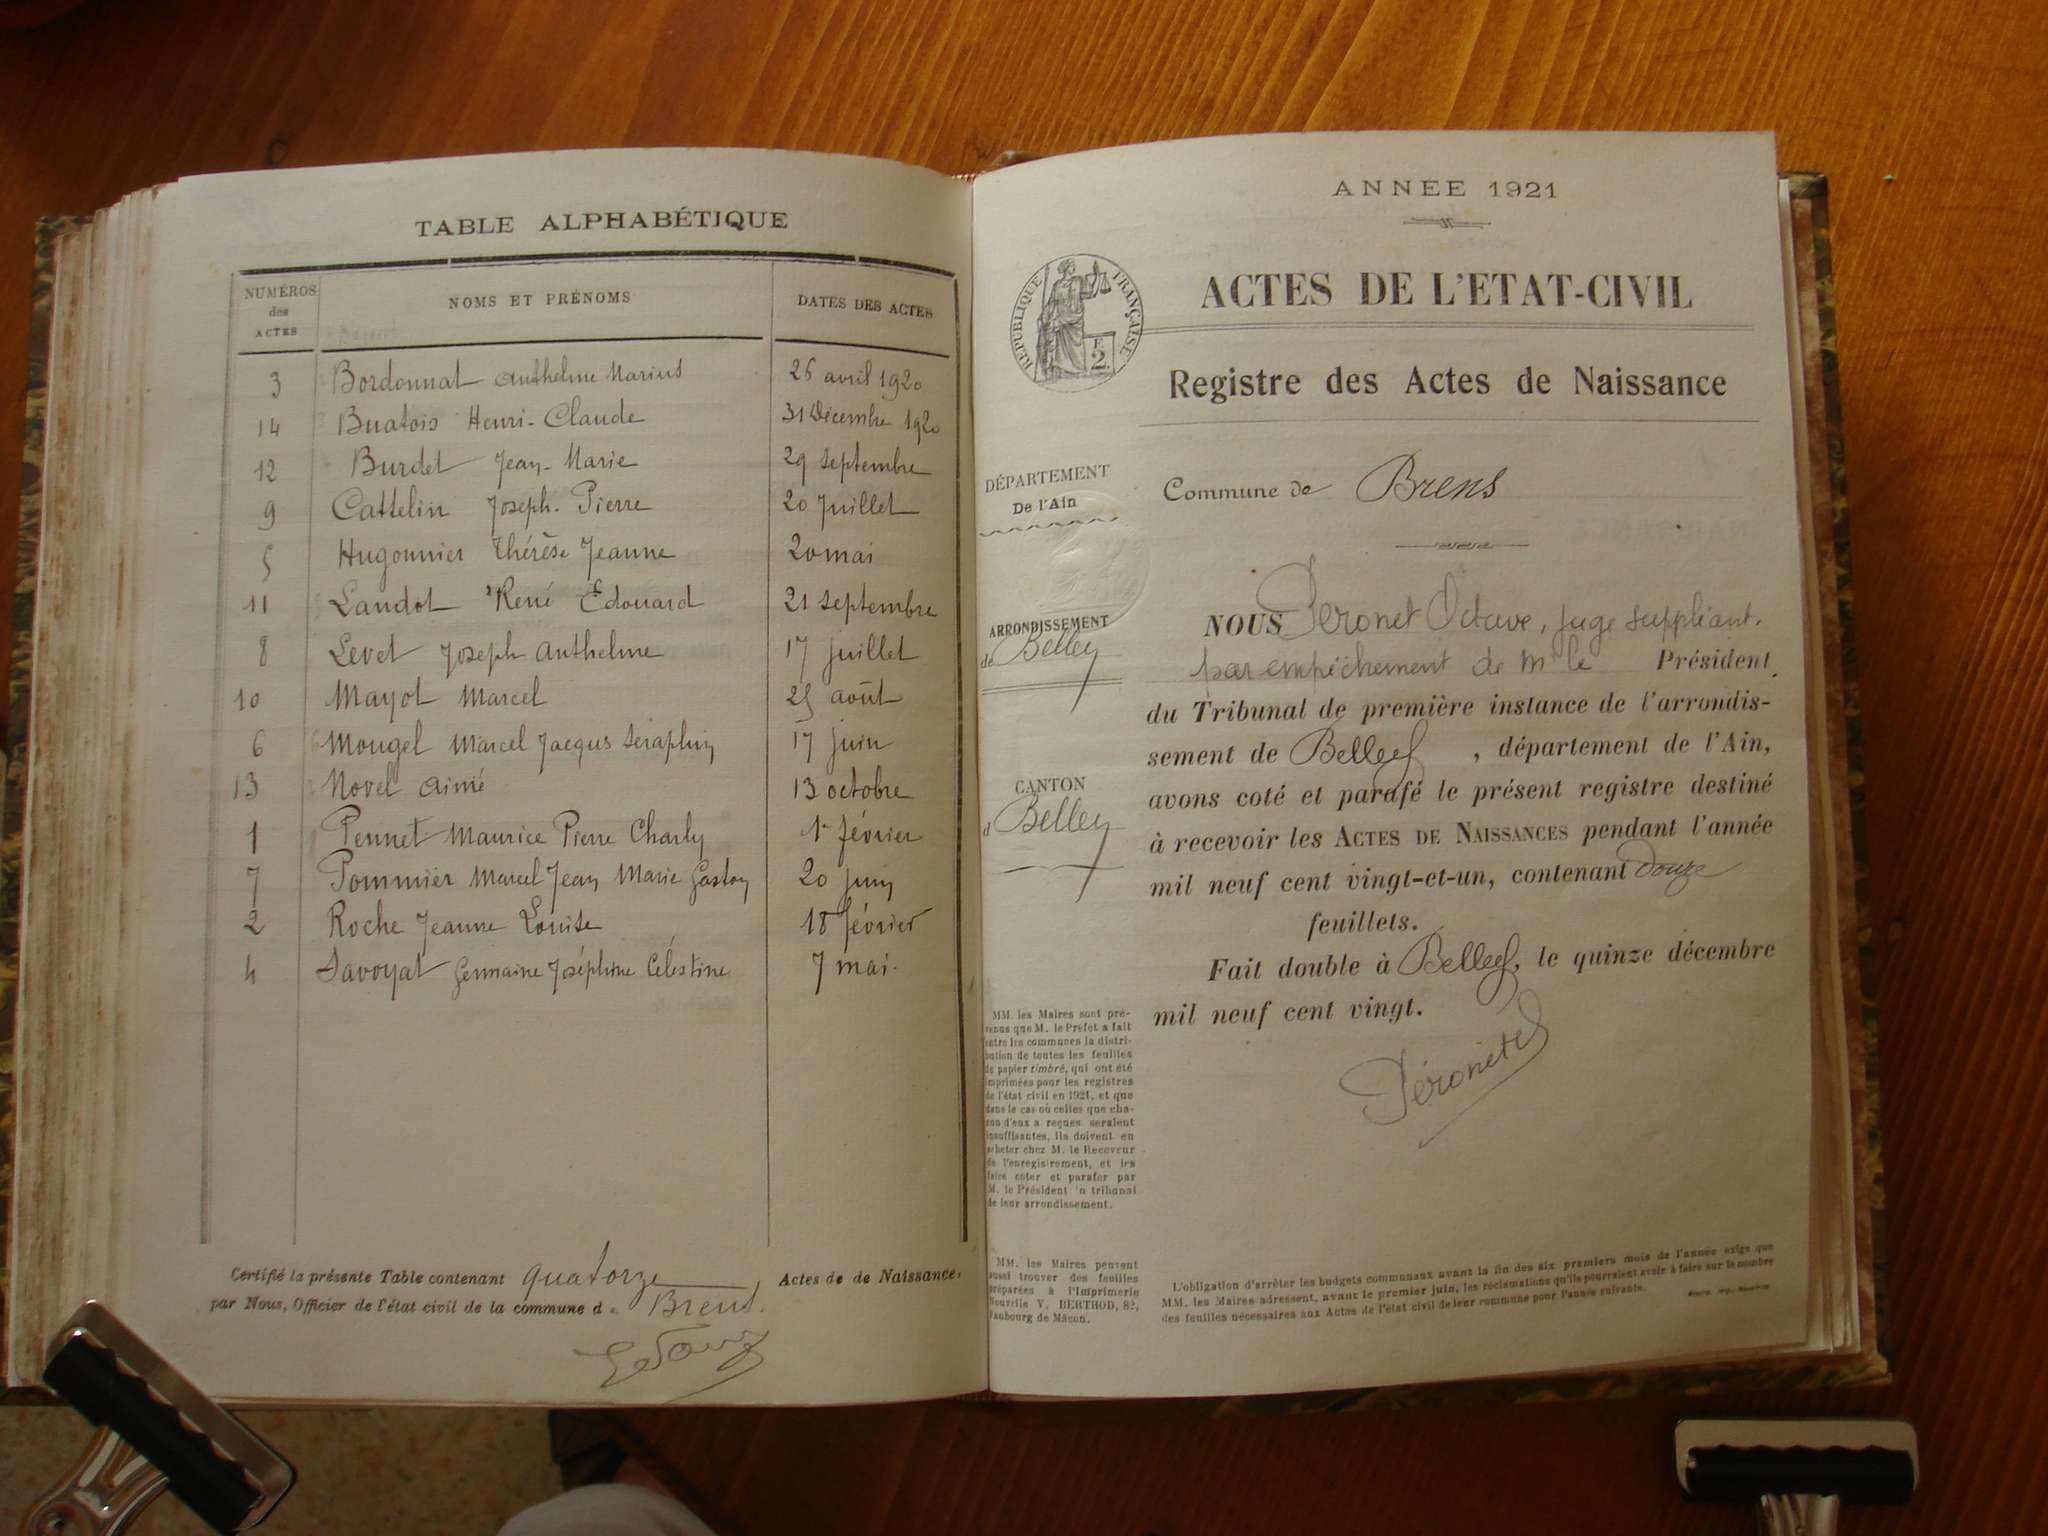 TABLE ALPHABÉTIQUE
NUMÉROS des ACTES NOMS ET PRÉNOMS DATES DES ACTES
3 Bordonnat Anthelme Marius 26 avril 1920
14 Buatois Henri-Claude 31 Décembre 1920
12 Burdet Jean-Marie 29 septembre
9 Cattelin Joseph-Pierre 20 Juillet
5 Hugonnier Thérèse Jeanne 20 mai
11 Landot René Edouard 21 septembre
8 Levet Joseph Anthelme 17 juillet
10 Mayot Marcel 25 août
6 Mougel Marcel Jacques Séraphin 17 juin
13 Novel Aimé 13 octobre
1 Pennet Maurice Pierre Charly 1r février
7 Pommier Marcel Jean Marie Gaston 20 juin
2 Roche Jeanne Louise 18 février
4 Savoyat Germaine Joséphine Célestine 7 mai.
Certifié la présente Table contenant quatorze Actes de de Naissance,
par Nous, Officier de l'état civil de la commune de Brens.
ANNÉE 1921
RÉPUBLIQUE FRANÇAISE
F. 2
ACTES DE L'ETAT-CIVIL
Registre des Actes de Naissance
DÉPARTEMENT
De l'Ain
Commune de Brens
ARRONDISSEMENT
de Belley
CANTON
d Belley
NOUS Peronet Octave, juge suppléant,
par empêchement de Mr le Président
du Tribunal de première instance de l'arrondis-
sement de Belley, département de l'Ain,
avons coté et parafé le présent registre destiné
à recevoir les ACTES DE NAISSANCES pendant l'année
mil neuf cent vingt-et-un, contenant douze
feuillets.
Fait double à Belley, le quinze décembre
mil neuf cent vingt.
Péronet
MM. les Maires sont pré-
venus que M. le Préfet a fait
entre les communes la distri-
bution de toutes les feuilles
de papier timbré, qui ont été
imprimées pour les registres
de l'état civil en 1921, et que
dans le cas où celles que cha-
cun d'eux a reçues seraient
insuffisantes, ils doivent en
acheter chez M. le Receveur
de l'enregistrement, et les
faire coter et parafer par
M. le Président 'u tribunal
de leur arrondissement.
MM. les Maires peuvent
aussi trouver des feuilles
préparées à l'Imprimerie
Nouvelle V. BERTHOD, 82,
Faubourg de Mâcon.
L'obligation d'arrêter les budgets communaux avant la fin des six premiers mois de l'année exige que
MM. les Maires adressent, avant le premier juin, les réclamations qu'ils pourraient avoir à faire sur le nombre
des feuilles nécessaires aux Actes de l'état civil de leur commune pour l'année suivante.